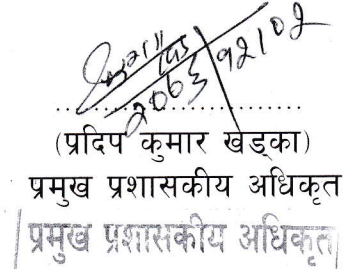 २०७३/१२/०२
(प्रदिप कुमार खड्का)
प्रमुख प्रशासकीय अधिकृत
प्रमुख प्रशासकीय अधिकृत